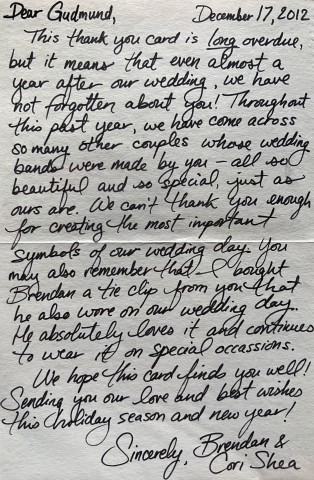 Dear Gudmund, December 17, 2012
This thank you card is long overdue,
but it means that even almost a
year after our wedding, we have
not forgotten about you! Throughout
this past year, we have come across
so many other couples whose wedding
bands were made by you - all so
beautiful and so special, just as
ours are. We can't thank you enough
for creating the most important
symbols of our wedding day. You
may also remember that I bought
Brendan a tie clip from you that
he also wore on our wedding day.
He absolutely loves it and continues
to wear it on special occassions.
We hope this card finds you well!
Sending you our love and best wishes
this holiday season and new year!
Sincerely, Brendan &
Cori Shea